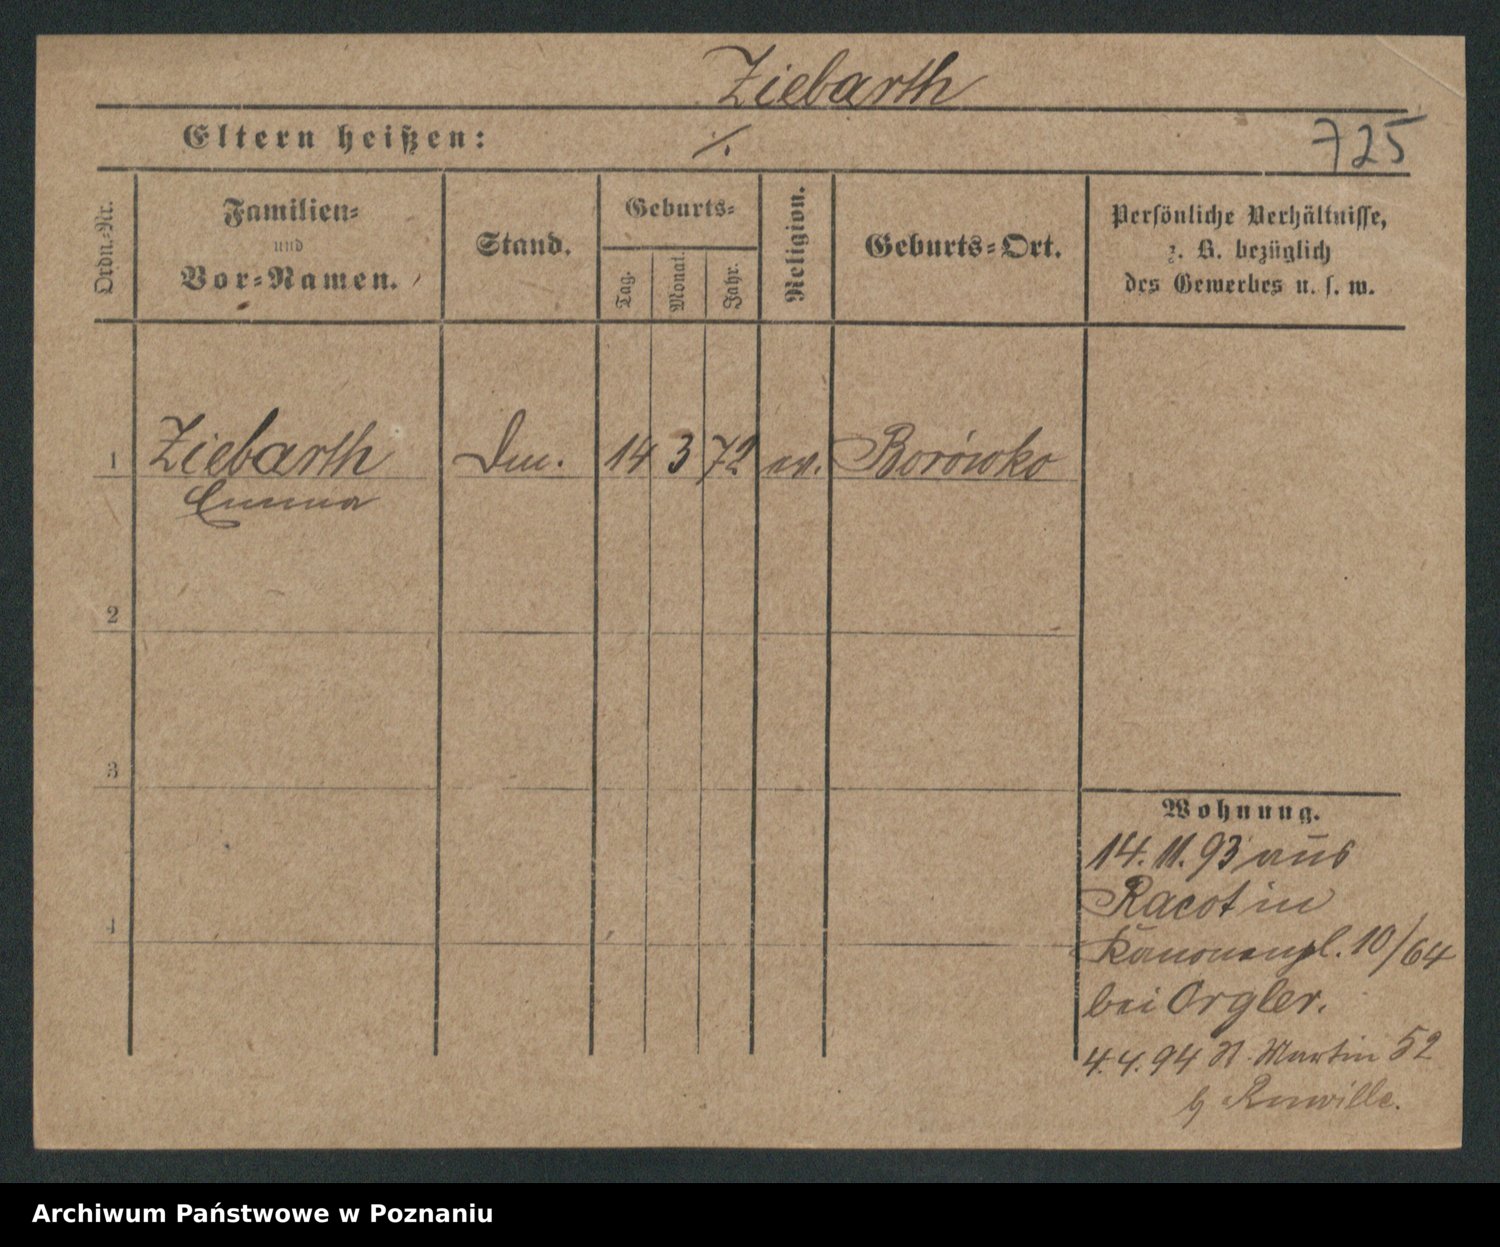 Ziebarth
Eltern heißen: ./.
725
Ordn.-Nr.
Familien-
und
Vor-Namen.
Stand.
Geburts-
Tag.
Monat.
Jahr.
Religion.
Geburts-Ort.
Persönliche Verhältnisse,
z. B. bezüglich
des Gewerbes u. s. w.
1 Ziebarth 14 3 72 ev. Borówko
Emma
2
3
4
Wohnung.
14. 11. 93 aus
Racot in
Kanonenpl. 10/64
bei Orgler.
4. 4. 94 St. Martin 52
b
Archiwum Państwowe w Poznaniu